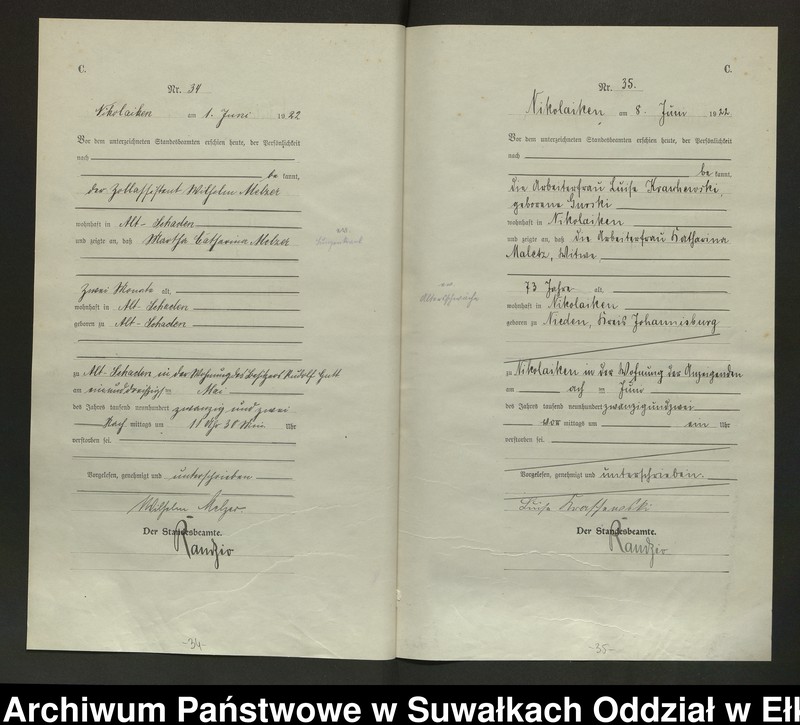 C.
Nr. 34
Nikolaiken am 1. Juni 1922
Vor dem unterzeichneten Standesbeamten erschien heute, der Persönlichkeit
nach
be kannt,
der Zollassistent Wilhelm Melzer
wohnhaft in Alt-Schaden
und zeigte an, daß Martha Catharina Melzer
zwei Monate alt,
wohnhaft in Alt-Schaden
geboren zu Alt-Schaden
zu Alt-Schaden in der Wohnung des Besitzers Rudolf
am einunddreißigsten Mai
des Jahres tausend neunhundert zwanzig und zwei
Nach mittags um 11 Uhr 30 Min. Uhr
verstorben sei.
Vorgelesen, genehmigt und unterschrieben
Wilhelm Melzer.
Der Standesbeamte.
Randzio
-34-
C.
Nr. 35.
Nikolaiken am 8. Juni 1922
Vor dem unterzeichneten Standesbeamten erschien heute, der Persönlichkeit
nach
be kannt,
die Arbeiterfrau Luise
geborene Gurski
wohnhaft in Nikolaiken
und zeigte an, daß die Arbeiterfrau Katharina
Maletz, Witwe
73 Jahre alt,
Altersschwäche
wohnhaft in Nikolaiken
geboren zu Nieden, Kreis Johannisburg
zu Nikolaiken in der Wohnung der Anzeigenden
am ach ten Juni
des Jahres tausend neunhundert zwanzigundzwei
vor mittags um ein Uhr
verstorben sei.
Vorgelesen, genehmigt und unterschrieben.
Luise
Der Standesbeamte.
Randzio
-35-
Archiwum Państwowe w Suwałkach Oddział w Eł